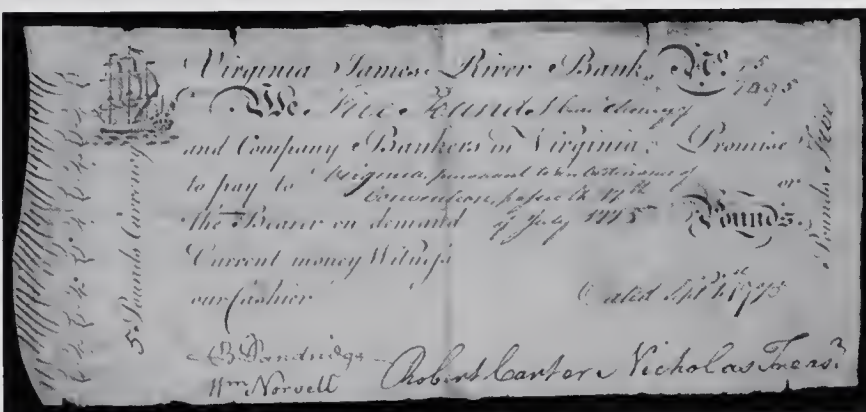 Virginia James River Bank, No. 15
1095
We Five Pounds
and Company Bankers in Virginia, Promise
to pay to Virginia, pursuant to an Ordinance of
Convention, passed the 17th or
the Bearer on demand of July 1775 Pounds.
Current money Witness
our Cashier Dated
B Dandridge
Wm Norvell Robert Carter Nicholas Treasr
5 Pounds Currency
Pounds Five